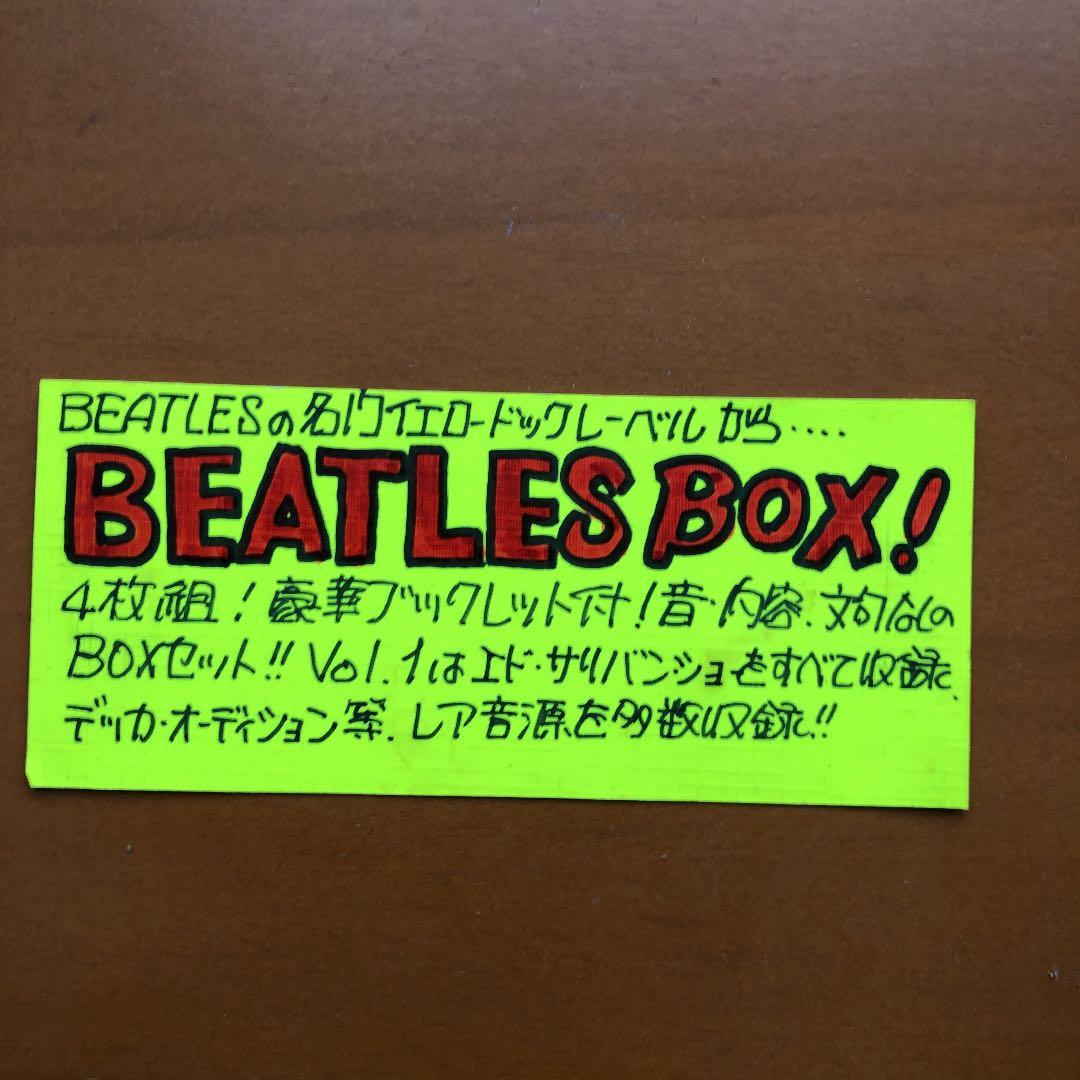 BEATLESの名門イエロードックレーベルから....
BEATLES BOX!
4枚組!豪華ブックレット付!音・内容、文句なしの
BOXセット!! Vol.1はエド・サリバンショーをすべて収録、
デッカ・オーディション等、レア音源を多数収録!!